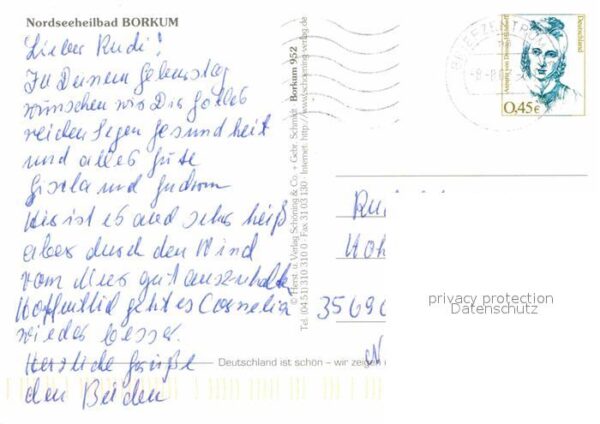 Nordseeheilbad BORKUM
Lieber Rudi!
Zu Deinem Geburtstag
wünschen wir Dir Gottes
reichen Segen Gesundheit
und alles Gute
Gisela und Gudrun
Hier ist es auch sehr heiß
aber durch den Wind
vom Meer gut auszuhalten
Hoffentlich geht es Cornelia
wieder besser.
Herzliche Grüße
den Beiden
Deutschland ist schön – wir zeigen
© Herst. u. Verlag Schöning & Co. + Gebr. Schmidt Borkum 952
Tel. (04 51) 310 310 0 · Fax 31 03 130 · Internet: http://www.schoening-verlag.de
BRIEFZENTRUM
Deutschland
0,45€
Rudi
Hoh
3569
privacy protection
Datenschutz